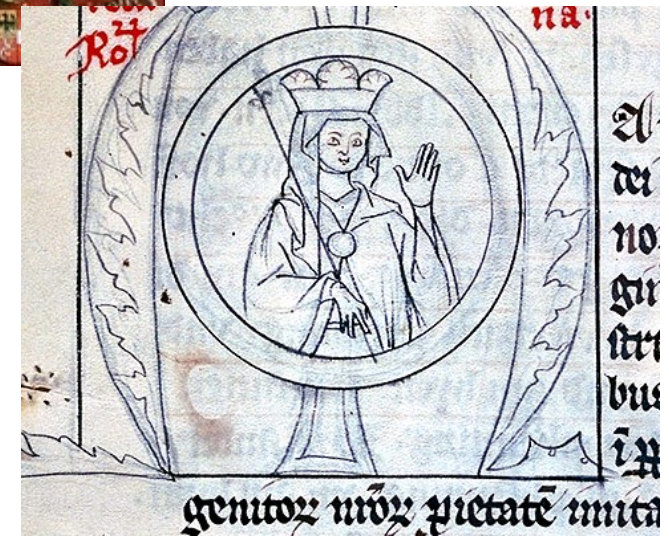 Roꝝ
na·
A
dei
no
gin
stri
bus
genitoꝝ nr̄oꝝ pietatē imita